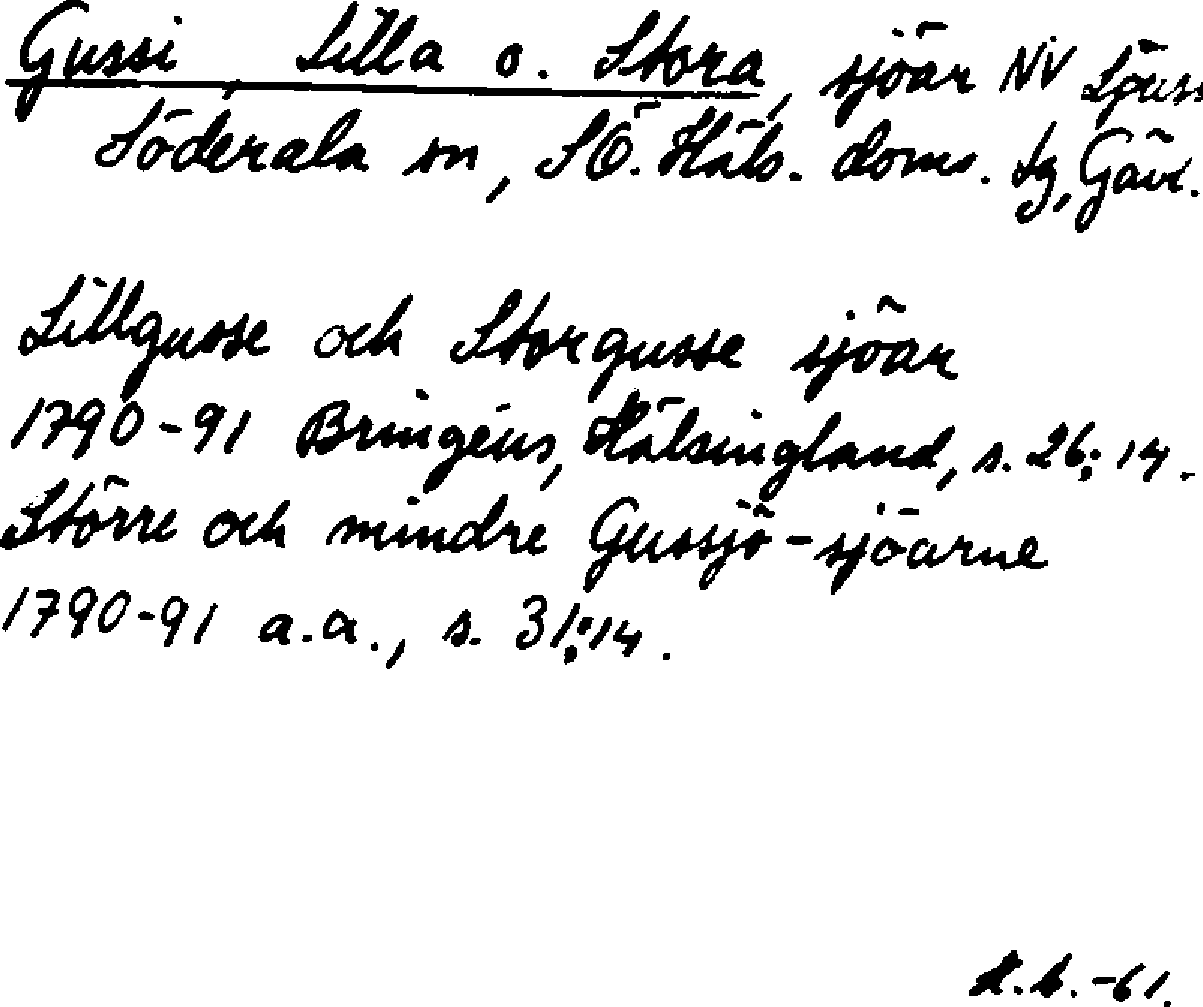 Gussi, Lilla o. Stora, sjöar NV Ljusn
Söderala sn, SÖ. Häls. doms. tg, Gävl.
Lillgusse och Storgusse sjöar
1790-91 Bringéus, Hälsingland, s. 26; 14.
Större och mindre Gussjö-sjöarne
1790-91 a.a., s. 31; 14.
-61.